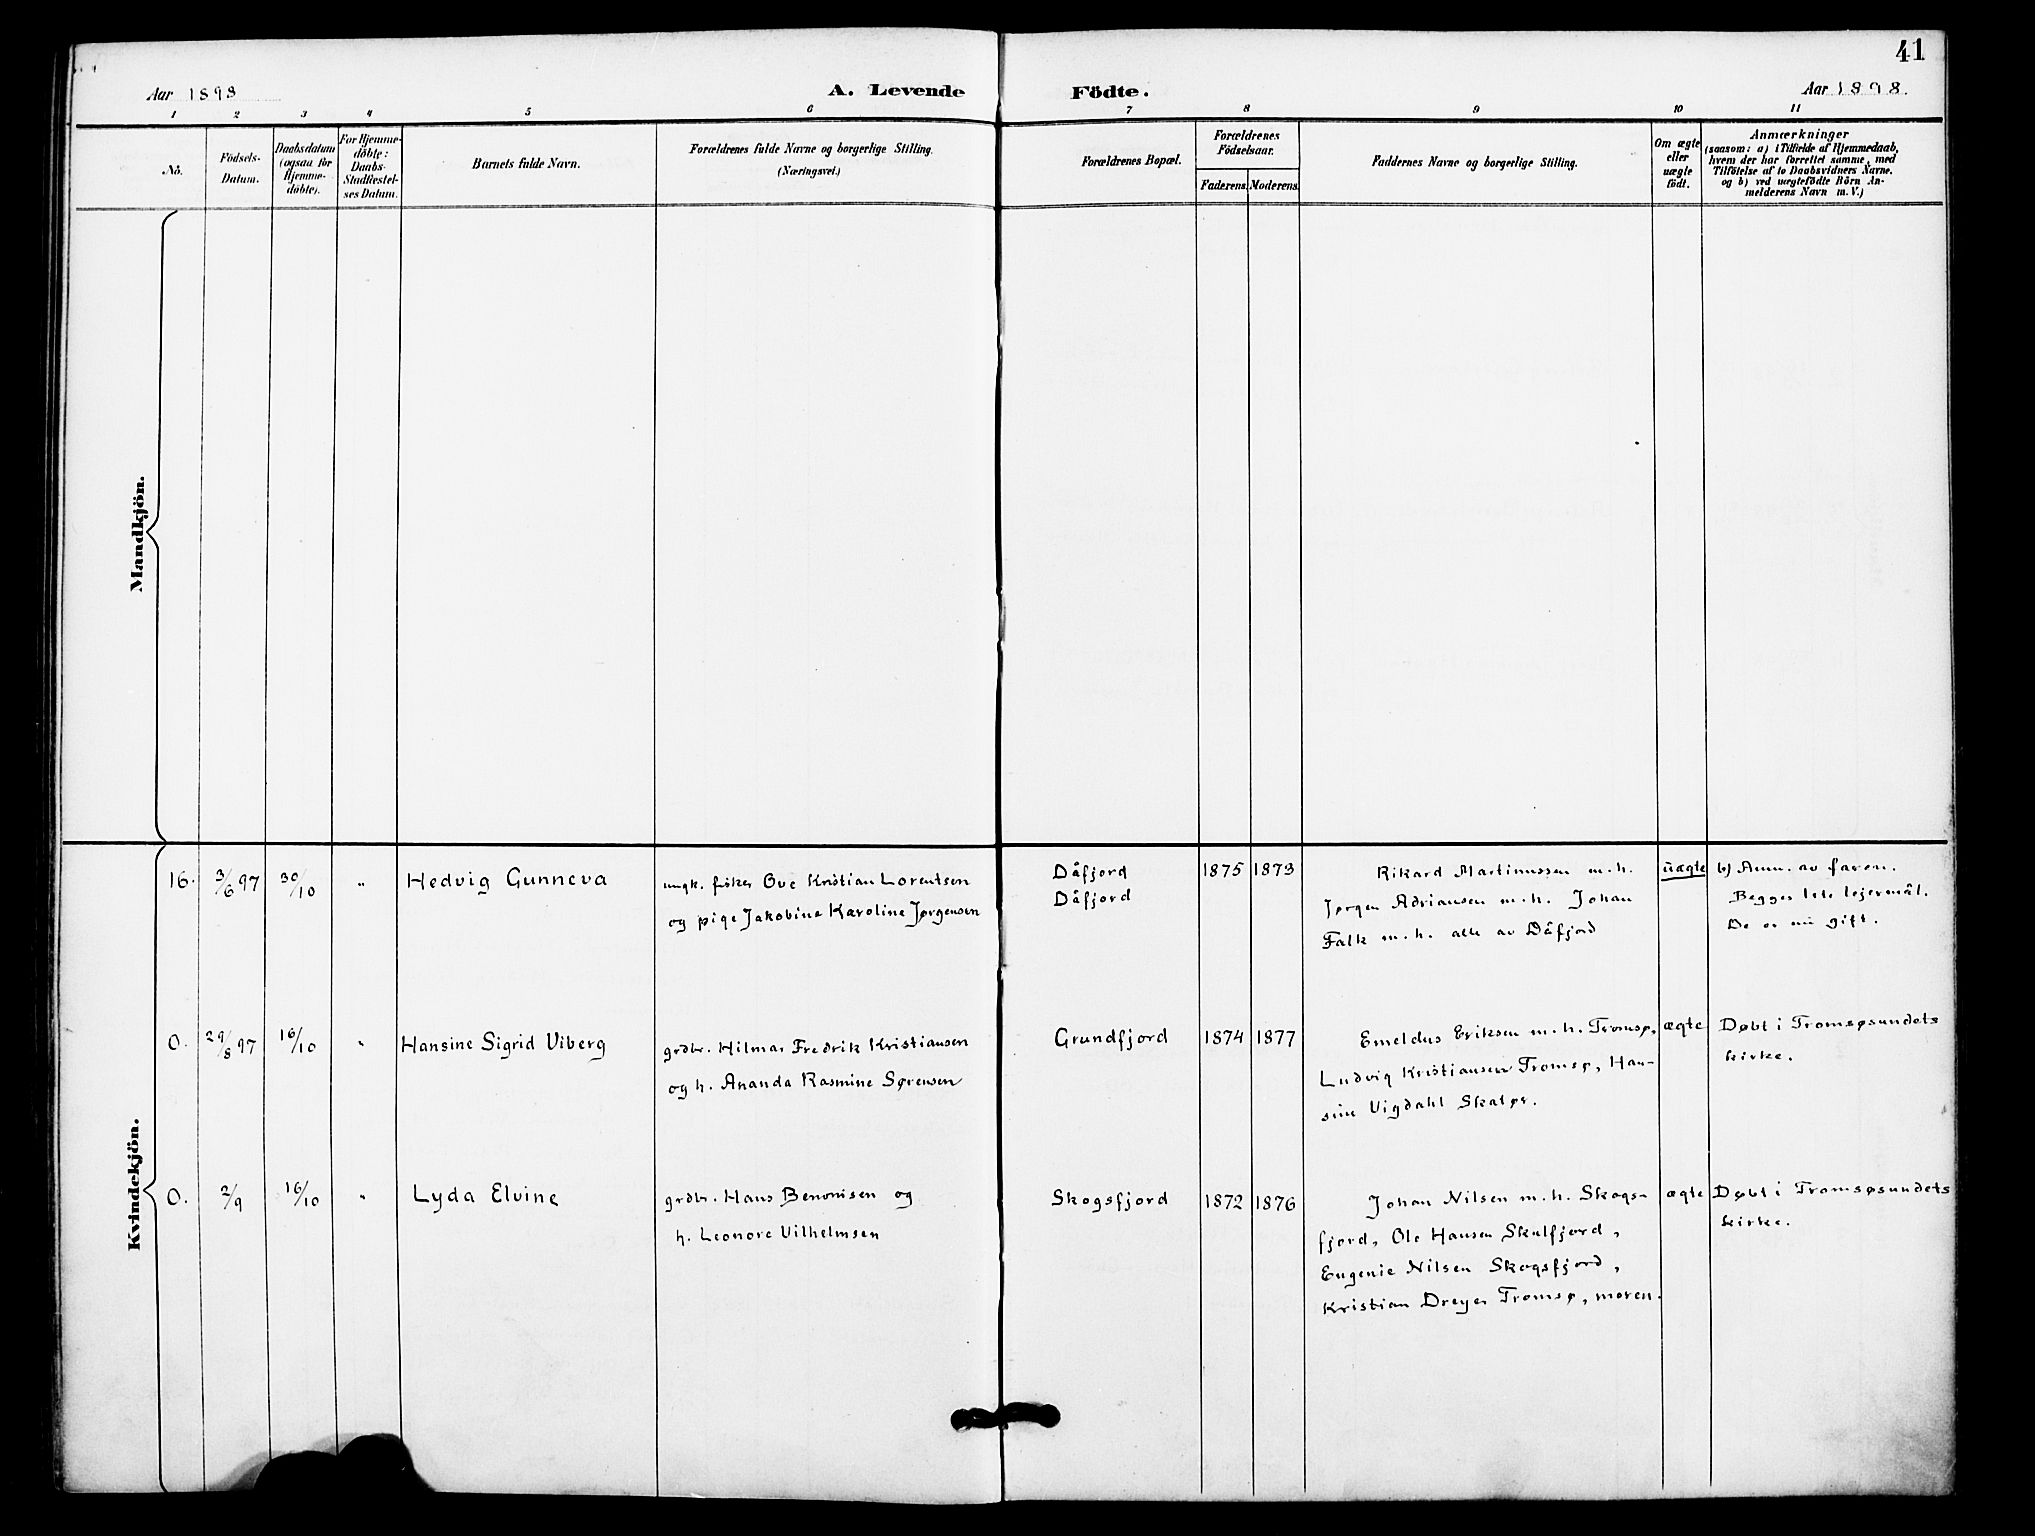 41
Aar 1898
A. Levende
Födte.
Aar 1898.
1 2 3 4 5 6 7 8 9 10 11
No.
Födsels-
Datum.
Daabsdatum
(ogsaa for
Hjemme-
döbte).
For Hjemme-
döbte:
Daabs-
Stadfæstel-
ses Datum.
Barnets fulde Navn.
Forældrenes fulde Navne og borgerlige Stilling.
(Næringsvei.)
Forældrenes Bopæl.
Forældrenes
Födselsaar.
Faderens.
Moderens.
Faddernes Navne og borgerlige Stilling.
Om ægte
eller
uægte
födt.
Anmærkninger
(saasom: a) i Tilfælde af Hjemmedaab,
hvem der har forrettet samme, med
Tilföielse af to Daabsvidners Navne.
og b) ved uægtefödte Börn An-
melderens Navn m. V.)
Mandkjön.
Kvindekjön.
16. 3/6 97 30/10 " Hedvig Gunneva
ungk. fisker Ove Kristian Lorentsen
og pige Jakobine Karoline Jørgensen
Dåfjord
Dåfjord
1875 1873
Rikard Martinussen m.h.
Jørgen Adriansen m.h. Johan
Falk m.h. alle av Dåfjord
uægte
b) Anm. av faren.
Begges 1ste lejermål.
De er nu gift.
0. 29/8 97 16/10 " Hansine Sigrid Viberg
grdbr. Hilmar Fredrik Kristiansen
og h. Ananda Rasmine Sørensen
Grundfjord
1874 1877
Emeldus Eriksen m.h. Tromsø,
Ludvig Kristiansen Tromsø, Han-
sine Vigdahl Skatør.
ægte
Døbt i Tromsøsundets
kirke.
0. 2/9 16/10 " Lyda Elvine
grdbr. Hans Benonisen og
h. Leonore Vilhelmsen
Skogsfjord
1872 1876
Johan Nilsen m.h. Skogs-
fjord, Ole Hansen Skulfjord,
Eugenie Nilsen Skogsfjord,
Kristian Dreyer Tromsø, moren.
ægte
Døbt i Tromsøsundets
kirke.